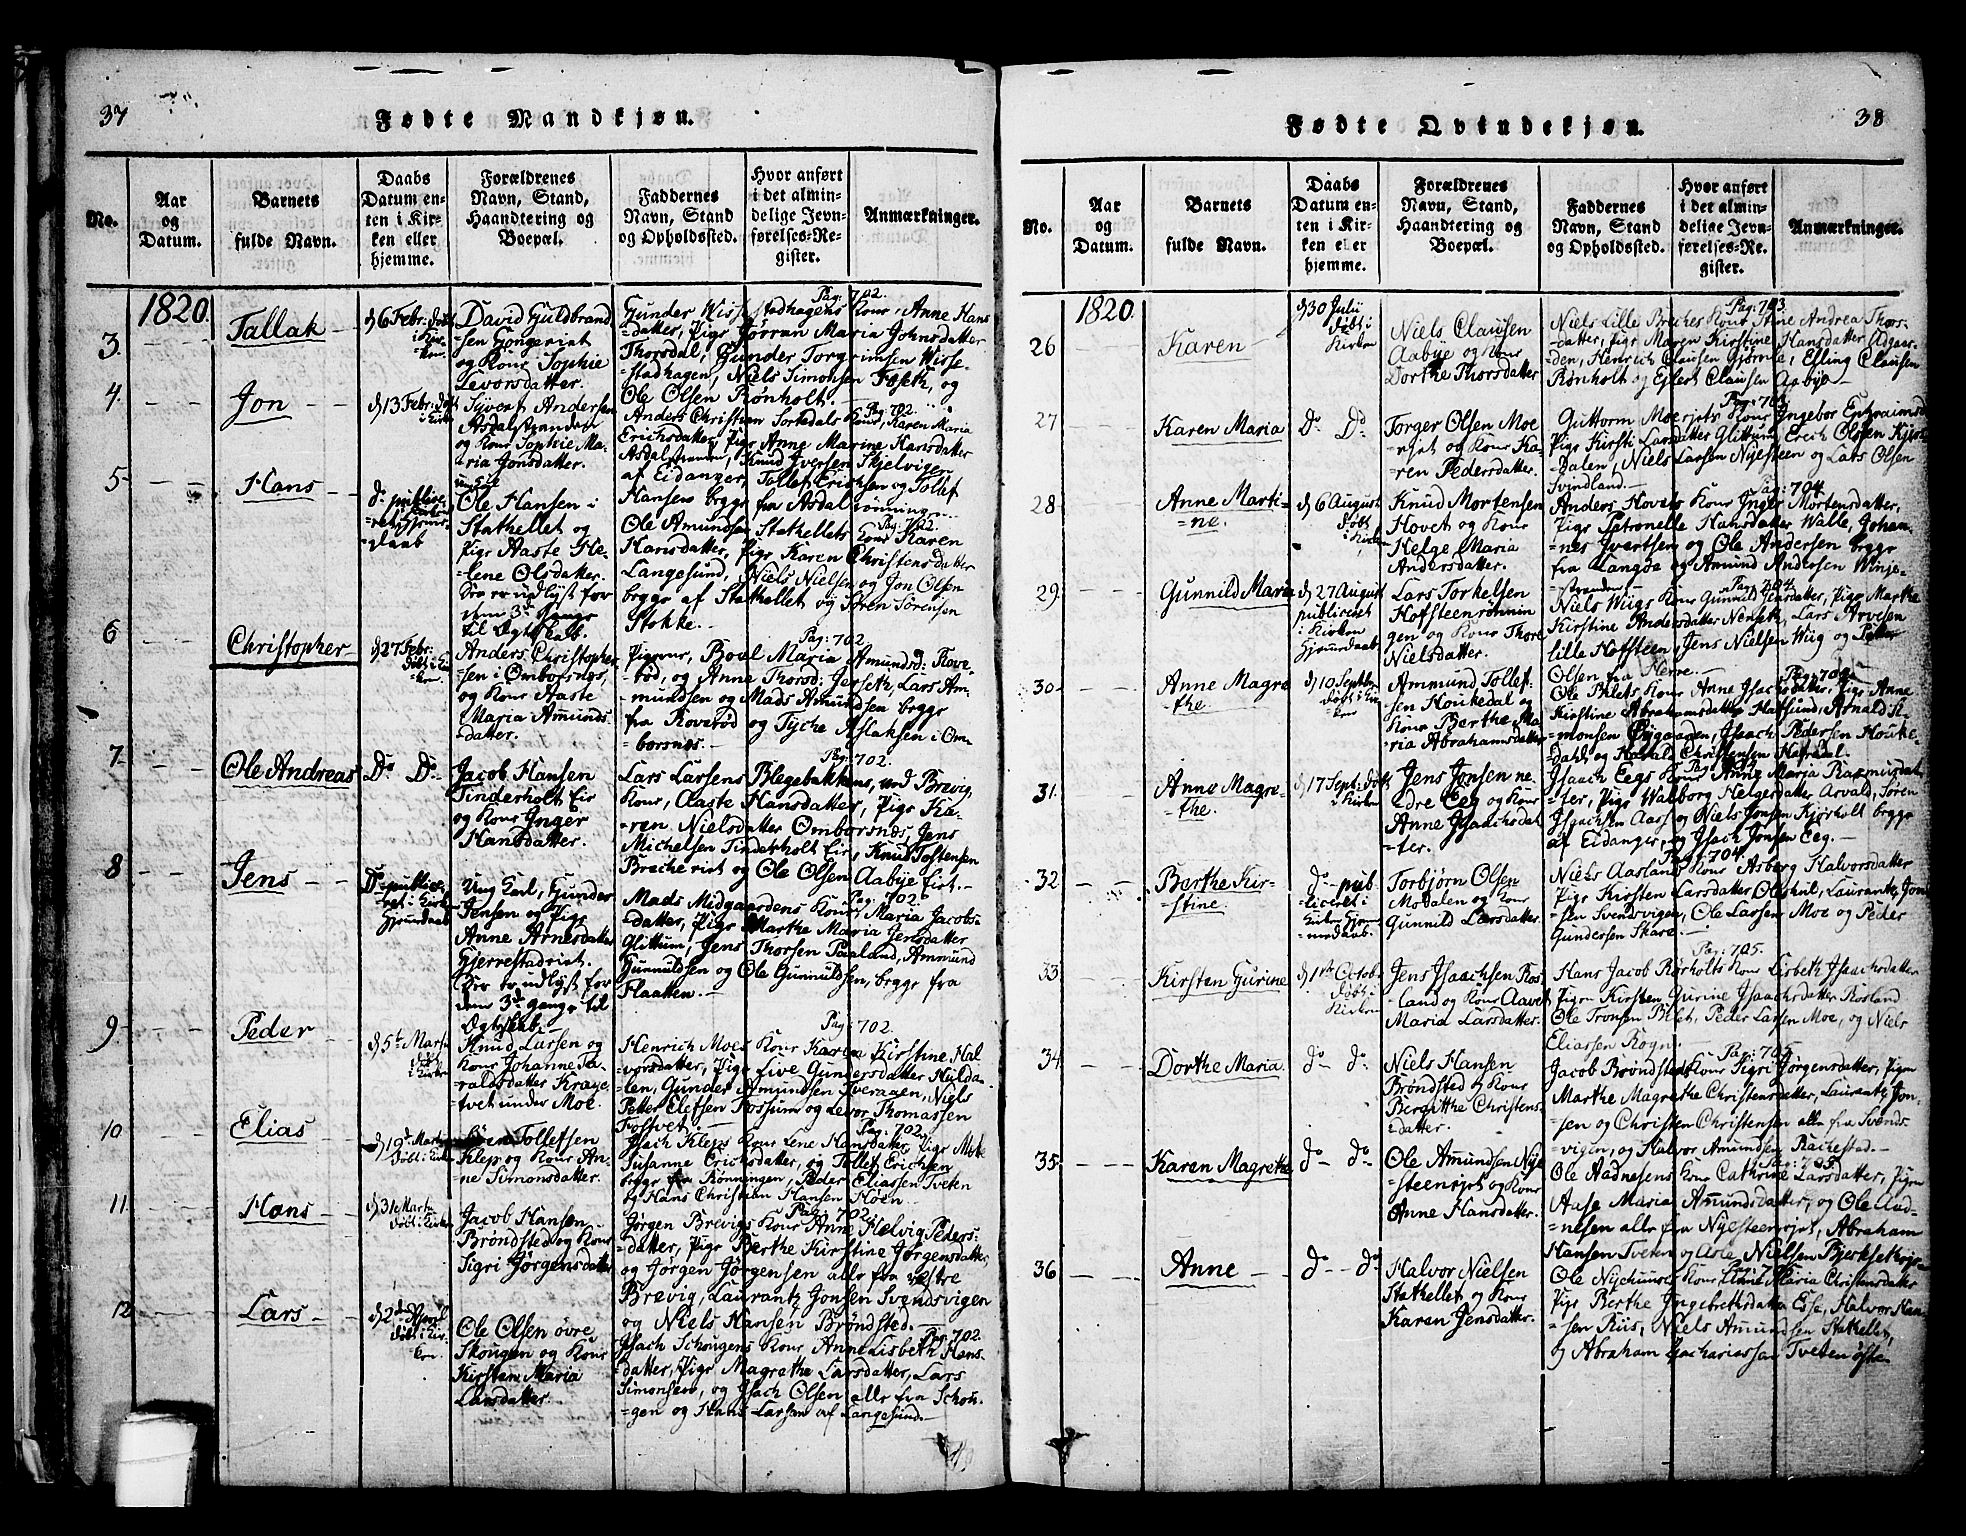 37
Fødte Mandkjøn.
No.
Aar
og
Datum.
Barnets
fulde Navn.
Daabs
Datum en-
ten i Kir-
ken eller
hjemme.
Forældrenes
Navn, Stand,
Haandtering og
Boepæl.
Faddernes
Navn, Stand
og Opholdssted.
Hvor anført
i det almin-
delige Jevn-
førelses-Re-
gister.
Anmærkninger.
1820.
3.
Tallak
d 6 Febr: døbt
i Kir-
ken.
David Guldbrand
=sen Gongeriet
og Kone Sophie
Levorsdatter.
Pag: 702.
Gunder Wisstadhagens Kone, Anne Hans
=datter, Pige Jørran Maria Johnsdatter
Thorsdal, Gunder Torgrimsen Wisse-
=stadhagen, Niels Simonsen Foseth, og
Ole Olsen Rønholt.
4
Jon
d 13 Febr: døbt
i Kirk
Syvert Andersen
Asdalstranden
og Kone Sophie Ma-
ria Jonsdatter.
Pag: 702.
Anders Christian Sortedals Kone, Karen Maria
Erichsdatter, Pige Anne Marine Hansdatter
Asdalstranden, Knud Iversen Skjelvigen
af Eidanger, Tollef Erichsen og Tollef
Hansen begge fra Asdal
5
Hans
d. publice-
ret Hjem̄e-
=daab
Ole Hansen i
Stathellet og
Pige Aaste He-
=lene Olsdatter.
Bro er udlyst for
dem 3de Gange
til Ægteskab.
Pag: 702.
Ole Amundsen Stathellets Kone Karen
Hansdatter, Pige Karen Christensdatter
Langesund, Niels Nielsen og Jon Olsen
begge af Stathellet og Søren Sørensen
Stokke.
6
Christopher
d 27 Febr:
døbt i Kir-
=ken
Anders Christopher
=sen i Omborsnes,
og Kone Aaste
Maria Amunds
=datter.
Pag: 702.
Pigerne, Boel Maria Amundsd: Rove-
=bød, og Anne Thorsd: Jerseth, Lars Am-
mundsen og Mads Amundsen begge
fra Rovebød og Tyche Aslaksen i Om-
=borsnes.
7
Ole Andreas
Do Do
Jacob Hansen
Tinderholt Eir
og Kone Inger
Hansdatter.
Pag: 702.
Lars Larsens Blegebakkens, ved Brevig,
Kone, Aaste Hansdatter, Pige Ka-
=ren Nielsdatter Omborsnes, Jens
Michelsen Tinderholt Eir, Knud Tostensen
Brecheriet og Ole Olsen Aabye Eiet.
8
Jens
Do publice-
ret i Kirk
Hjem̄edaab
Ung Karl, Gunder
Jensen og Pige
Anne Arnesdatter
Gjerrestadriet.
Bro er udlyst for
dem 3de gange til
Ægteskab.
Pag: 702.
Mads Midgaardens Kone, Maria Jacobs-
=datter, Pige Marthe Maria Jensdatter
Glittum, Jens Thorsen Paaland, Ammund
Gunnuldsen og Ole Gunnuldsen, begge fra
Flaatten.
9.
Peder
d 5te Marts
døbt
i Kirken
Knud Larsen og
Kone Johanne Ta-
raldsdatter Krage-
tvet under Moe.
Pag: 702.
Henrich Moes Kone Karen Kirstine Hal-
vorsdatter, Pige Live Gundersdatter Huldda-
len, Gunder Amundsen Tveraaen, Niels
Petter Elefsen Rossum og Levor Thomassen
Fostvet.
10
Elias
d 19de Marts
døbt i Kirk
Tollefsen
Klep og Kone An-
ne Simonsdatter.
Pag: 702.
Isach Kleps Kone Lene Hansdatter, Pige Mette
Susanne Erichsdatter, og Tollef Erichsen
begge fra Rønningen, Peder Eliassen Tveten
og Hans Christian Hansen Høen.
11.
Hans
d 31 Marts
døbt i Kirken
Jacob Hansen
Brøndsted og Kone
Sigri Jørgensdatter
Pag: 702.
Jørgen Brevigs Kone Anne Helvig Peders-
=datter, Pige Berthe Kirstine Jørgensdatter,
og Jørgen Jørgensen alle fra vestre
Brevig, Laurantz Jonsen Svendsvigen
og Niels Hansen Brøndsted.
12.
Lars
d 2de April
døbt i Kir-
ken.
Ole Olsen øvre
Skougen og Kone
Kirsten Maria
Larsdatter.
Pag: 702.
Isach Schougens Kone Anne Lisbeth Hans-
datter, Pige Magrethe Larsdatter, Lars
Simonsen, og Isach Olsen alle fra Schou-
=gen og Hans Larsen af Langesund.
38
Fødte Qvindekjøn.
No.
Aar
og
Datum.
Barnets
fulde Navn.
Daabs
Datum en-
ten i Kir-
ken eller
hjemme.
Forældrenes
Navn, Stand,
Haandtering og
Boepæl.
Faddernes
Navn, Stand
og Opholdssted.
Hvor anført
i det almin-
delige Jevn-
førelses-Re-
gister.
Anmærkninger.
1820.
26
Karen
d 30 Julii
døbt i
Kirken
Niels Clausen
Aabye og Kone
Dorthe Thorsdatter
Pag: 703.
Niels Lille Breches Kone Stine Andrea Thors-
datter, Pige Maren Kirstine Hansdatter Adgaar-
den, Henrich Clausen Gjørna, Efling Clausen
Rønholt og Ejlert Clausen Aabye.
27
Karen Maria
Do Do
Torger Olsen Moe
rejet og Kone Ka-
ren Pedersdatter.
Pag: 703
Guttorm Moerejets Kone Ingebor Ephraimsd.
Pige Kirsti Larsdatter Glittum, Erich Olssen Kjørs-
dalen, Niels Larsen Nysteen og Lars Olsen
Svindland.
28
Anne Marti-
=ne.
d 6 August
døbt
i Kirken
Knud Mortensen
Hovet og Kone
Helge Maria
Andersdatter.
Pag: 704.
Anders Hovets Kone Inger Mortensdatter,
Pige Petronelle Hansdatter Walle, Johan-
=nes Ivertsen og Ole Andersen begge
fra Langøe og Amund Andersen Winje-
=stranden.
29.
Gunnild Maria
d 27 August
publiceret
i Kirken
Hjem̄edaab
Lars Torkelsen
Hoffsteenrønnin
gen og Kone Thore
Nielsdatter.
Pag: 704.
Niels Wiigs Kone Gunnild Jensdatter, Pige Marthe
Kirstine Andersdatter Nenseth, Lars Arvesen
lille Hoffsteen, Jens Nielsen Wiig og Petter
Olsen fra Herre.
30.
Anne Magre
the.
d 10 Septbr
døbt i Kir-
ken
Ammund Tollef-
sen Houkedal og
Kone Berthe Ma-
ria Abrahamsdatter
Pag: 704.
Ole Blets Kone Anne Isachsdatter, Pige Anne
Kirstine Abrahamsdatter Hafsund, Arnald Si-
monsen Øygaarden, Isaach Pedersen Houke-
Dahl og Harald Christensen Hafsdal.
31.
Anne Magre-
the.
d 17 Sept: døbt
i Kirken
Jens Jonsen ne-
dre Eeg og Kone
Anne Isaachsdat
=ter.
Isaach Eegs Kone Anne Maria Rasmusdat
=ter, Pige Walborg Helgesdatter Asvald, Søren
Isaachsen Aass og Niels Jonsen Kjørholt begge
af Eidanger, og Isach Jonsen Eeg.
32
Berthe Kir-
=stine.
do pub
liceret i
Kirken Hjem-
=medaab.
Torbjørn Olsen
Modalen og Kone
Gunnild Larsdatter.
Pag: 704.
Niels Aaslands Kone Asborg Halvorsdatter
Pige Kirsten Larsdatter Oleskilt, Laurantz Jon-
sen Svendsvigen, Ole Larsen Moe og Peder
Gundersen Skare.
33
Kirsten Gurine
d 1ste Octob.
døbt i
Kirken
Jens Isaachsen Ros-
land og Kone Aavet
Maria Larsdatter.
Pag: 705.
Hans Jacob Rørholts Kone Lisbeth Isaachsdatter
Pigen Kirsten Gurine Isaachsdatter Rosland
Ole Tronsen Blet, Peder Larsen Moe, og Niels
Eliassen Rogn.
34
Dorthe Maria.
do do
Niels Hansen
Brøndsted og Kone
Bergitthe Christens
=datter.
Pag: 705
Jacob Brøndsteds Kone Sigri Jørgensdatter, Pigen
Marthe Magrethe Christensdatter, Laurantz Jon-
sen og Christen Christensen alle fra Svends-
vigen, og Halvor Amundsen Rachestad.
35.
Karen Magrethe
do do
Ole Amundsen Nye
steensrjet og Kone
Anne Hansdatter.
Pag: 705.
Ole Aadnesens Kone Cathrine Larsdatter, Pigen
Aase Maria Amundsdatter, og Ole Aad-
=nesen alle fra Nyesteensrjet, Abraham
Hansen Tveten og Asle Nielsen Bjerksetkoje
36
Anne
do do
Halvor Nielsen
Stathellet og Kone
Karen Jensdatter.
Ole Nyehuuses Kone Anne Maria Christensdatter
Pige Berthe Ingebrethsdatter Esse, Halvor Han
sen Riis, Niels Amundsen Stathellet,
og Abraham Zachariassen Tveten